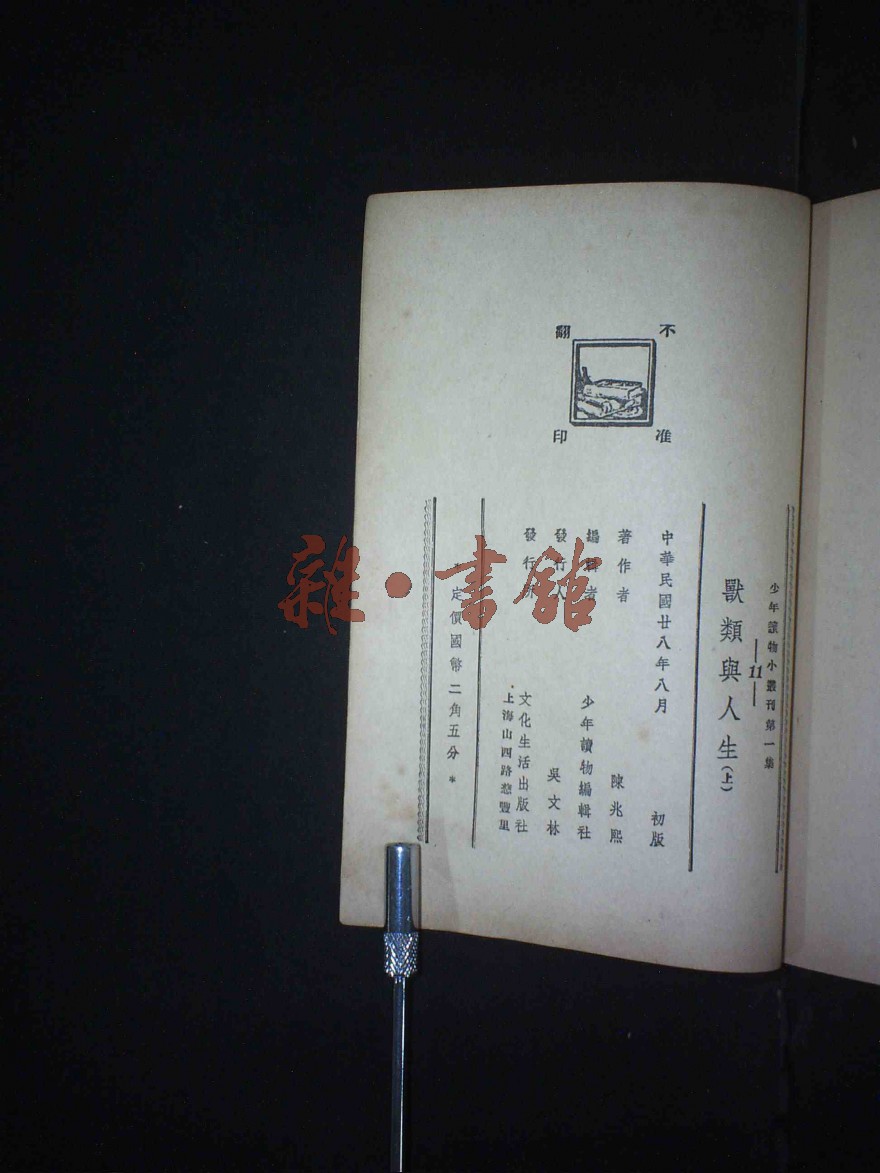 不准翻印
少年讀物小叢刊第一集
11
獸類與人生(上)
中華民國廿八年八月 初版
著作者 陳兆熙
編輯者 少年讀物編輯社
發行人 吳文林
發行所 文化生活出版社
上海山四路慈豐里
*定價國幣二角五分*
雜·書館